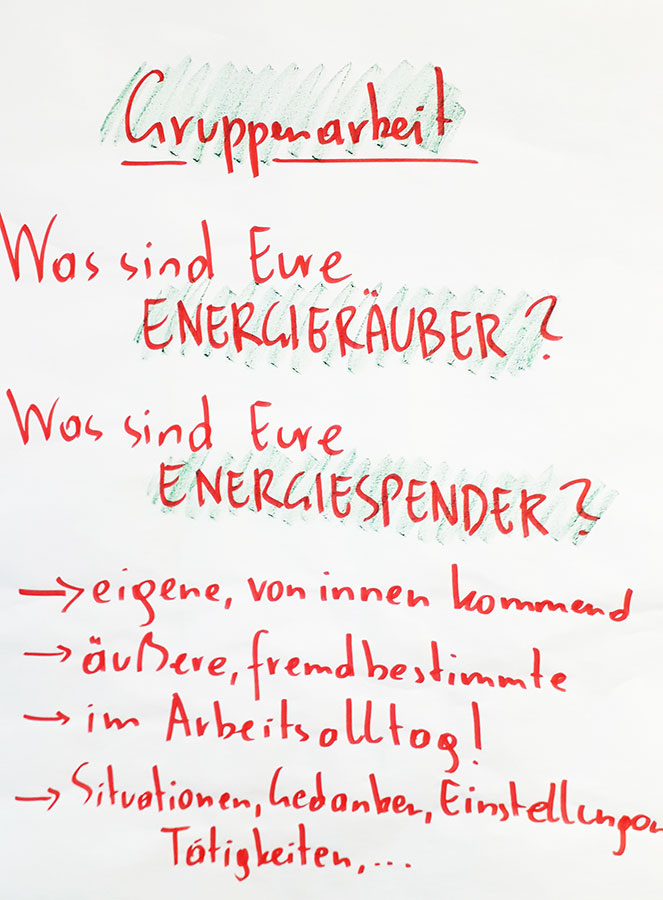 Gruppenarbeit
Was sind Eure
ENERGIERÄUBER?
Was sind Eure
ENERGIESPENDER?
→ eigene, von innen kommend
→ äußere, fremdbestimmte
→ im Arbeitsalltag!
→ Situationen, Gedanken, Einstellungen
Tätigkeiten, ...